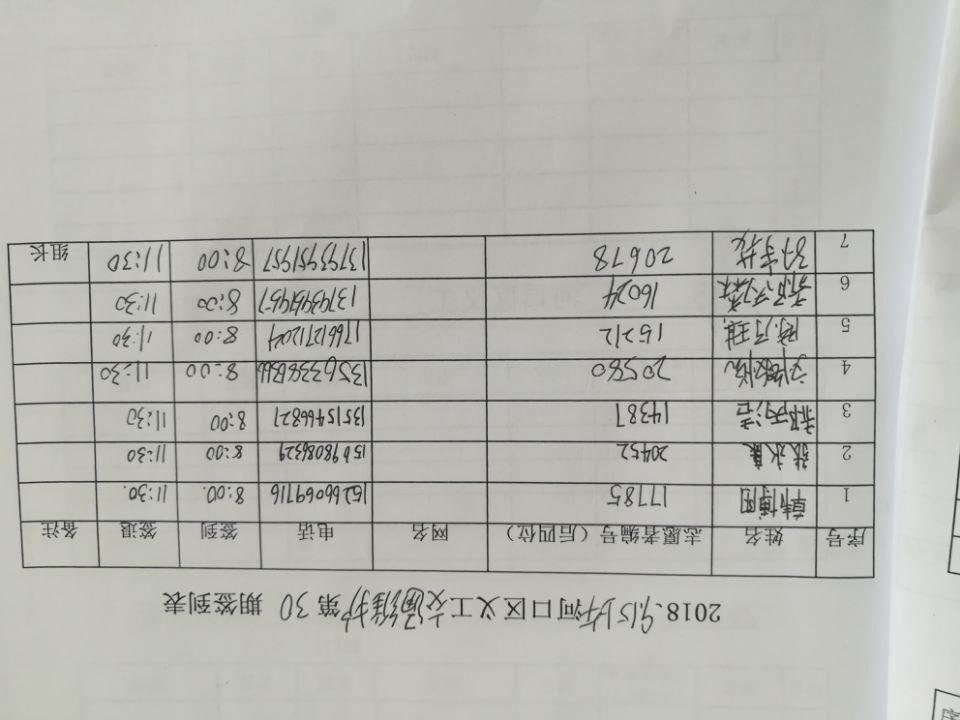 2018.9.15 河口区义工交通维护第 30 期签到表
序号 姓名 志愿者编号（后四位） 网名 电话 签到 签退 备注
1 韩博阳 17785 15266069716 8:00. 11:30.
2 张水晨 20452 15098086329 8:00 11:30
3 郝丙洁 14387 13515466827 8:00 11:30
4 20580 8:00 11:30
5 陈月琪 15212 17661271204 8:00 11:30
6 16024 8:00 11:30
7 20678 13793951957 8:00 11:30 组长